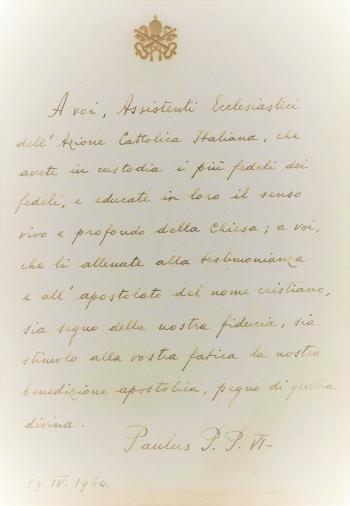 A voi, Assistenti Ecclesiastici
dell'Azione Cattolica Italiana, che
avete in custodia i più fedeli dei
fedeli, e educate in loro il senso
vivo e profondo della Chiesa; a voi,
che li allenate alla testimonianza
e all'apostolato del nome cristiano,
sia segno della nostra fiducia, sia
stimolo alla vostra fatica la nostra
benedizione apostolica, pegno di quella
divina.
Paulus P. P. VI-
19. IV. 1964.